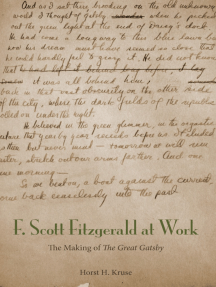 And as I sat there brooding on the old unknown
world I thought of Gatsby when he picked
out the green light at the end of Daisy's dock.
He had come a long way to this blue lawn
his dream must have seemed so close that
he could hardly fail to grasp it. He did not know
that
it was all behind him,
back in that vast obscurity on the other side
of the city, where the dark fields of the republic
rolled on under the night.
He believed in the green
future that year by year recedes before us. It eluded
then but never mind — tomorrow we will run
stretch out our arms farther. And one
morning —
So we beat on, a boat against the current,
borne back ceaselessly into the past
F. Scott Fitzgerald at Work
The Making of The Great Gatsby
Horst H. Kruse